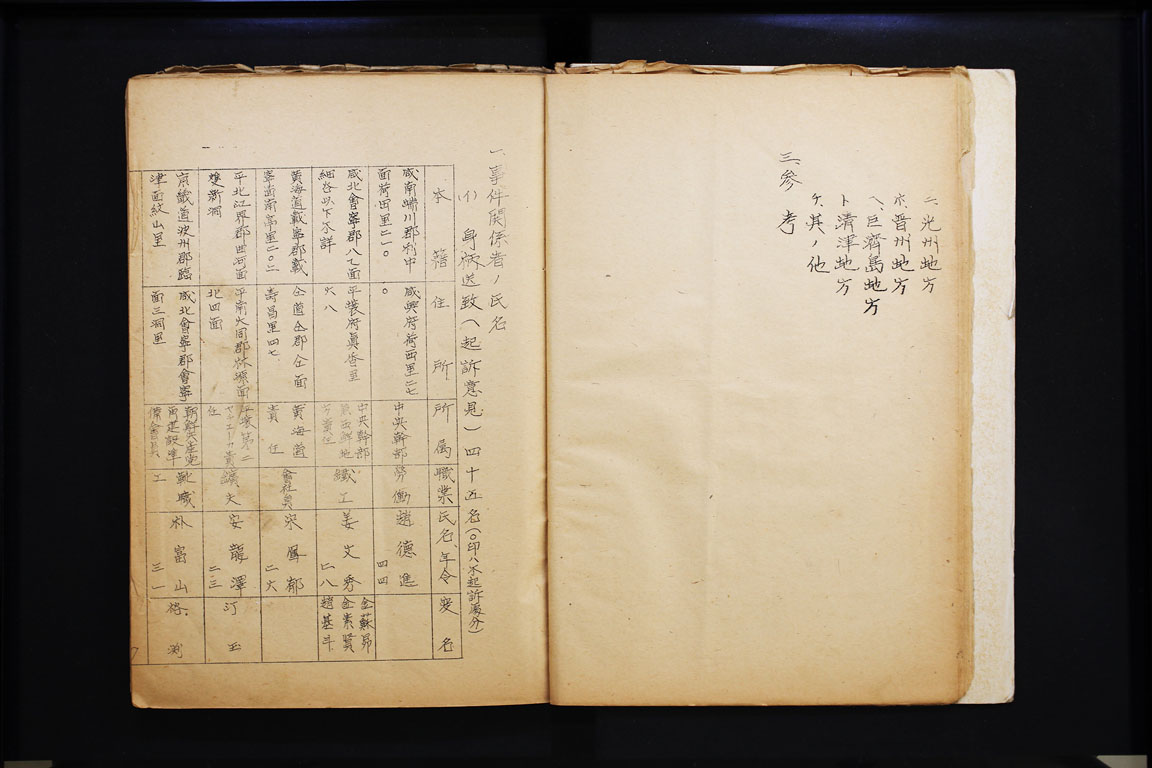 ニ、光州地方
ホ、晋州地方
ヘ、巨濟島地方
ト、清津地方
チ、其ノ他
三、參考
一、事件関係者ノ氏名
(イ) 身柄送致(起訴意見)四十五名(〇印ハ不起訴處分)
本籍 住所 所属 職業 氏名、年令 変名
咸南端川郡利中面荷田里二一〇
咸興府荷西里二七〇
中央幹部
労働
趙德進 四四
咸北會寧郡八乙面細谷以下不詳
平壤府眞香里六八
中央幹部
鐵工
姜文秀 二八
金蘇昴
金素賢
趙基斗
黄海道載寧郡載寧面南亭里二〇二
仝道仝郡仝面壽昌里四七
黄海道責任
會社員
宋鳳郁 二六
平北江界郡
平南大同郡林原面北四面
平壤第二
責任
鑛夫
安龍澤 二三
汀玉
京畿道波州郡臨津面紋山里
咸北會寧郡會寧面三洞里
朝鮮共産党再建設準備會員
靴職工
朴富山 三一